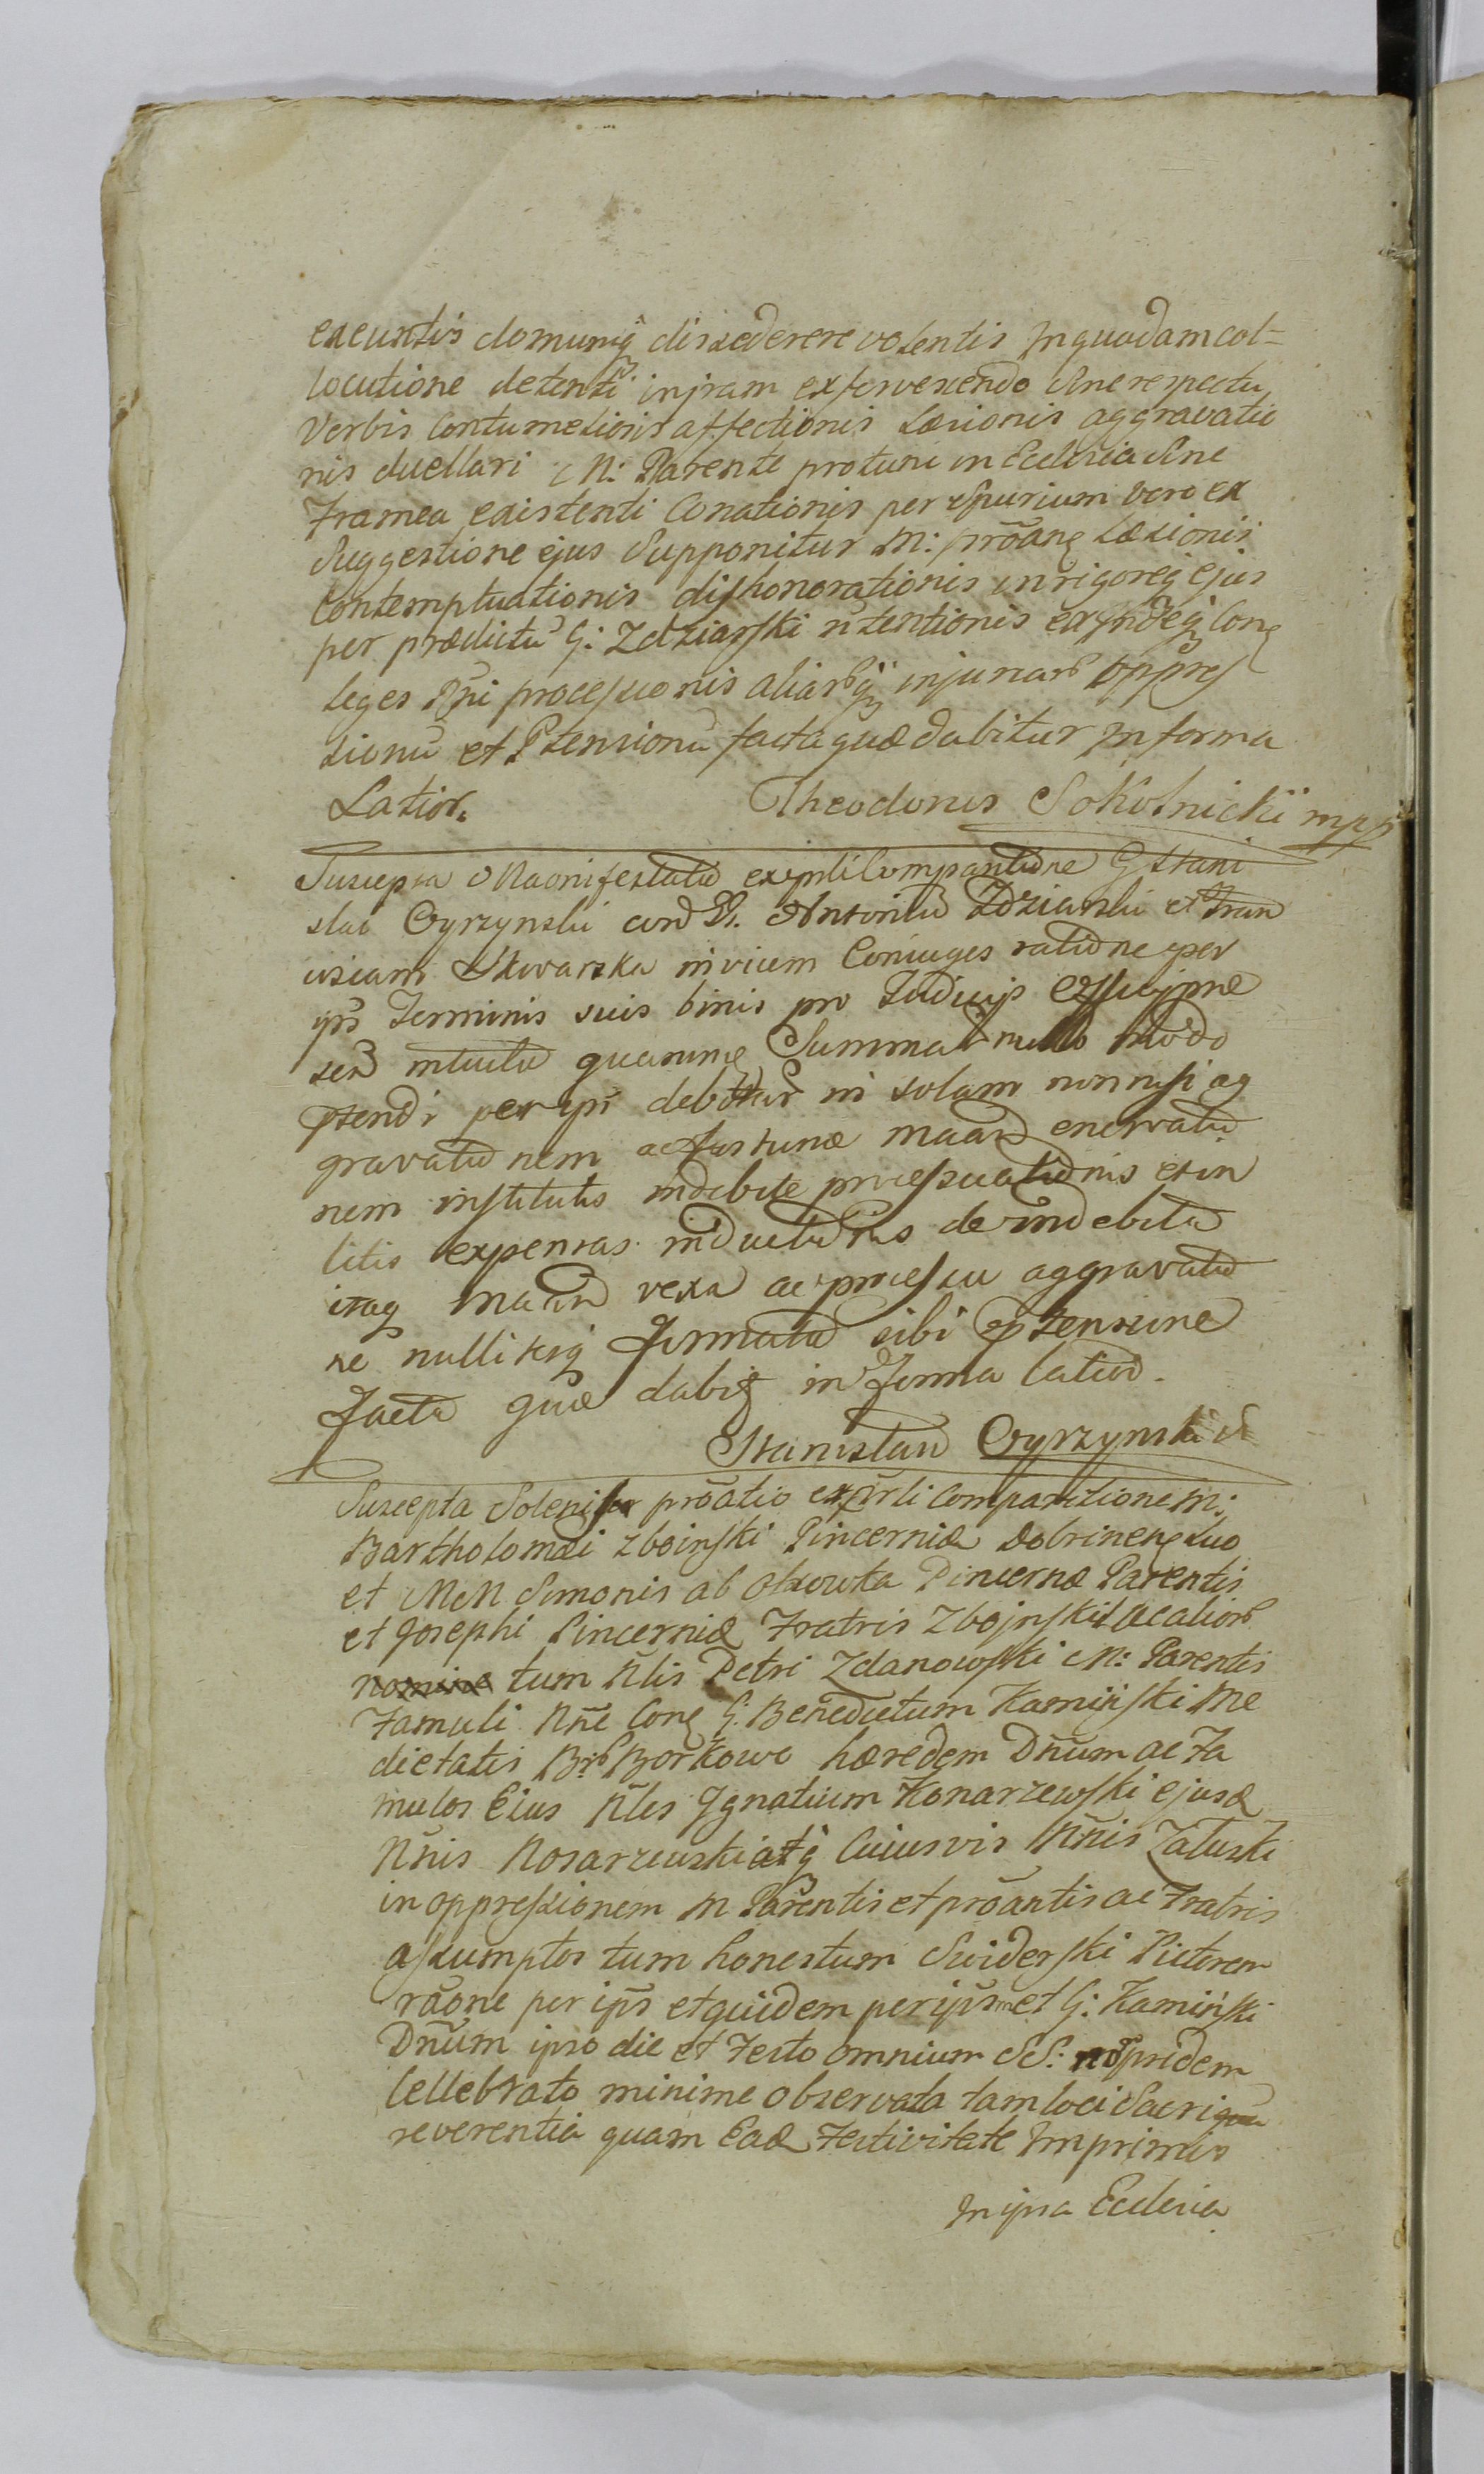 exeuntis domumq̃ dissederere volentis In quadam col=
locutione detenti in iram exforvescendo sine respectu
Verbis Contumeliosis affectionis Læsionis aggravatio
nis duellari M: Parente protunc in Ecclesia sine
Framea existenti Conationis per Spurium vero ex
Suggestione ejus Supponitur M: prõang Læsionis
Contemptuationis dishonorationis in rigoreq ejus
per prædictũ G: Zdziarski
leges processionis aliarq injuriar oppres
sionũ et Ptensionũ facta quæ dabitur In forma
Latior.
Theodorus Sokolnicki mpp
Suscepta Manifestatio ex psnli Comparitione G Stani
slai Cyrzynski con G. Antoniũ Zdziarski et Fran
ciscam Skwarska invicem Coniuges ratione per
ips Terminis suis binis pro Judicijs
intuitu quarung Summar nullo modo
ptendi per ips debitar in solam non nisi ag
gravationem ac fortunæ enervatio
nem institutis indebite processuationis et in
litis expensas inductionis de indebita
itaq vexa ac processu aggravatio
ne nulliterq formata sibi ptensione
facta quæ dabit in forma latior.
Stanislaw Cyrzynski
Suscepta Solenisr prõatio ex psnli Comparitione M:
Bartholomæi Zboinski Pincernidæ Dobrineng suo
et MM Simonis ab Olszowka Pincernæ Parentis
et Josephi Pincernidæ Fratris Zboinski ac alior
nomine tum Nlis Petri Zdanowski M: Parentis
Famuli Nñe Cong G: Benedictum Kamiński Me
dietatis Bnr Borkowo hæredem Dnum ac Fa
mulos Eius Nles Ignatium Konarzewski ejusd
Nñis Nosarzewski atq Cuiusvis Nñis Załuski
in oppressionem M Parentis et prõantis ac Fratris
assumptos tum honestum Swiderski Pictorem
rãone per ips et quidem per ipsmet G: Kamiński
Dnum ipso die et Festo omnium SS: pridem
Cellebrato minime observata tam loci Sacri
reverentia quam Ead Festivitate Imprimis
In ipsa Ecclesia